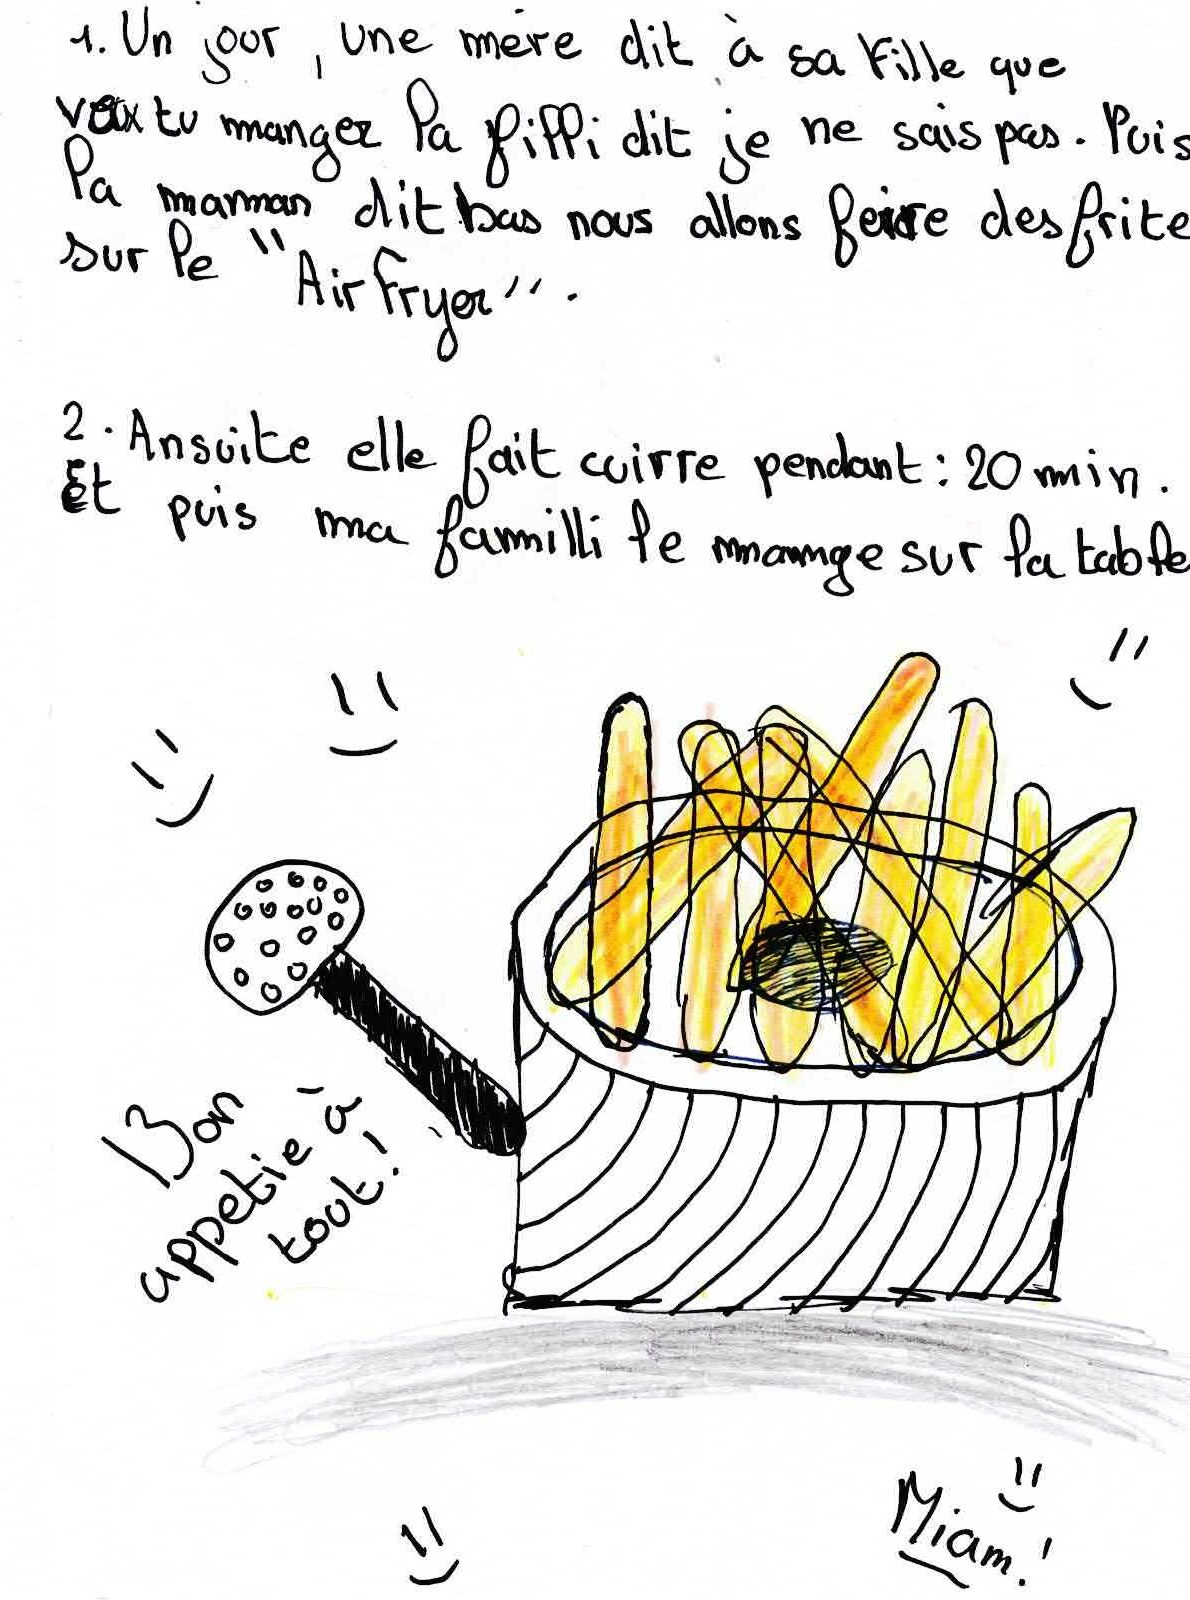 1. Un jour, une mère dit à sa fille que
veux tu manger la filli dit je ne sais pas. Puis
la maman dit bas nous allons feire des frite
sur le "Air fryer".
2. Ansuite elle fait cuirre pendant : 20 min.
Et puis ma familli le mange sur la table
Bon
appetie à
tout!
Miam!